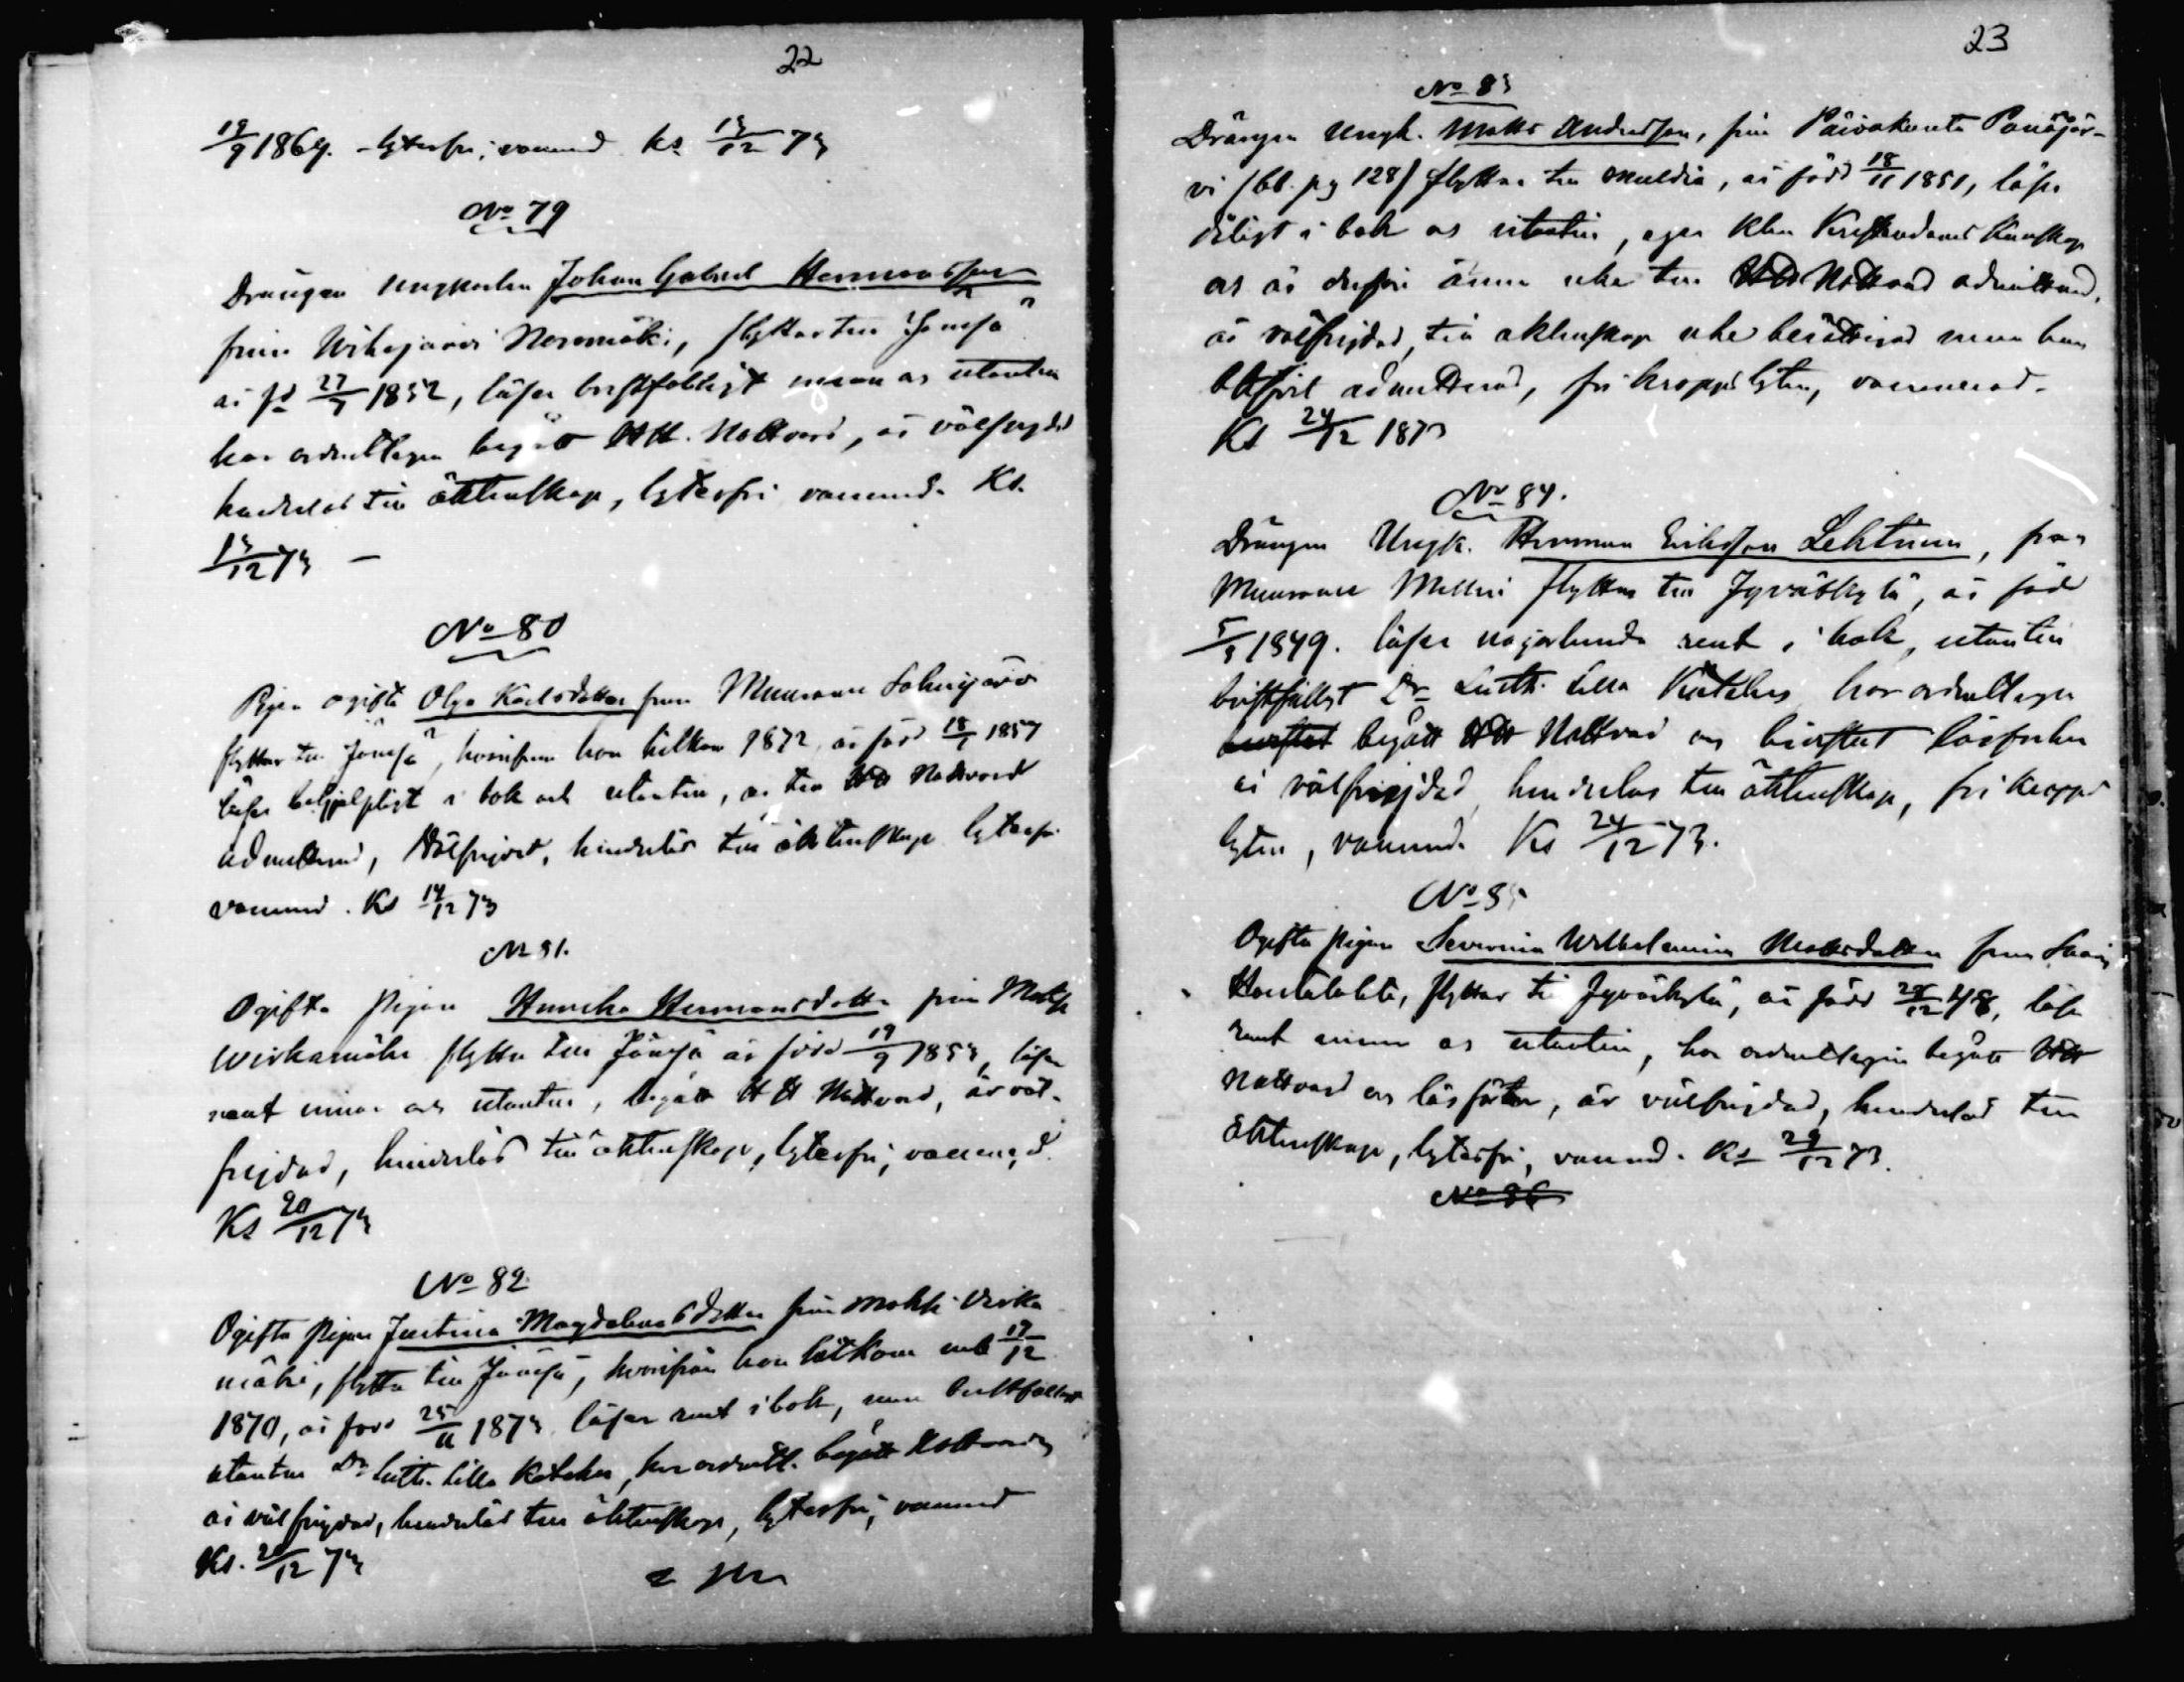 22
19/9 1869. lytesfri, vaccinerad. Ks 13/12 73
No 79
Drängen ungkarlen Johan Gabriel Hermansson
från Wihajärvi Noromäki, flyttar till Jämsä
är fd 27/7 1852, läser bristfälligt innan os utantill
har ordentligen begått HH. Nattvard, är välfrejdad
hinderlös till äktenskap, lytesfri vaccinerad. Ks.
13/12 73 —
No 80
Pigan ogifta Olga Karlsdotter från Muurame Sahinjärvi
flyttar till Jämsä, hvarifrån hon hitkom 1872, är född 18/1 1857
läser behjelpligt i bok och utantill, är till HH Nattvard
admitterad, Välfrejdad, hinderlös till äktenskap lytesfri
vaccinerad. Ks 14/12 73
No 81.
Ogifta pigan Hendrika Hermansdotter från
Wirkamäki flyttar till Jämsä är född 19/9 1853, läser
rent innan och utantill, begått HH Nattvard, är väl-
frejdad, hinderlös till äktenskap, lytesfri, vaccinerad.
Ks 20/12 73
No 82
Ogifta pigan Justina Magdalenasdotter från Mokki Virka
mäki, flyttar till Jämsä, hvarifrån hon hitkom 17/12
1870, är född 25/11 1873 läser rent i bok, men bristfälligt
utantill Dr Luth. Lilla Kateches, har ordentl. begått Nattvarden
är välfrejdad, hinderlös till äktenskap, lytesfri, vaccinerad
Ks. 20/12 73
23
No 83
Drängen Ungk. Matts Andersson, från Päivakunta Panäjär-
vi (bl. pg 128) flyttar till Multia, är född 18/11 1851, läser
dåligt i bok os utantill, eger klen Kristendoms kunskap
os är derföre ännu icke till HH Nattvard admitterad,
är välfrejdad, till äktenskap icke berättigad innan han
blifvit admitterad, fri kroppslyten, vaccinerad.
Ks 24/12 1873
No 84.
Drängen Ungk. Herman Eriksson Lehtinen, från
Muurame flyttar till Jyväskylä, är född
5/3 1849. läser någorlunda rent i bok, utantill
bristfälligt Dr Luth. Lilla Kateches, har ordentligen
begått HH Nattvard os bevistat läsförhör
är välfrejdad, hinderlös till äktenskap, fri kropps
lyten, vaccinerad. Ks 24/12 73.
No 85
Ogifta pigan Severina Wilhelmina Mattsdotter från
flyttar till Jyväskylä, är född 28/12 48, läser
rent innan os utantill, har ordentligen begått HH
Nattvard os läsförhör, är välfrejdad, hinderlös till
äktenskap, lytesfri, vaccinerad. Ks 29/12 73.
No 86